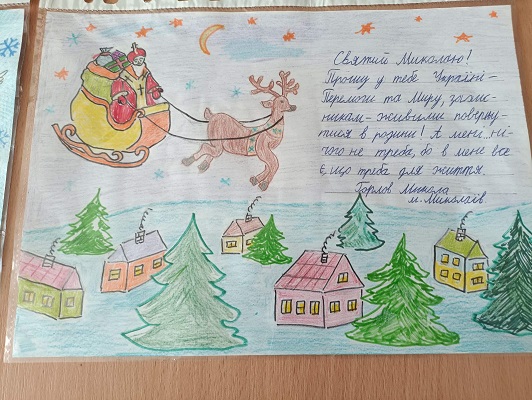 Святий Миколаю!
Прошу у тебе Україні-
Перемоги та Миру, захис-
никам- живими поверну-
тися в родини! А мені ні-
чого не треба, бо в мене все
є, що треба для життя.
Горлов Микола
м. Миколаїв.